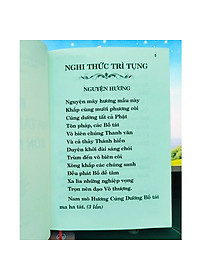 3
NGHI THỨC TRÌ TỤNG
NGUYỆN HƯƠNG
Nguyện mây hương mầu này
Khắp cùng mười phương cõi
Cúng dường tất cả Phật
Tôn pháp, các Bồ tát
Vô biên chúng Thanh văn
Và cả thảy Thánh hiền
Duyên khởi đài sáng chói
Trùm đến vô biên cõi
Xông khắp các chúng sanh
Đều phát Bồ đề tâm
Xa lìa những nghiệp vọng
Trọn nên đạo Vô thượng.
Nam mô Hương Cúng Dường Bồ tát
ma ha tát. (3 lần)